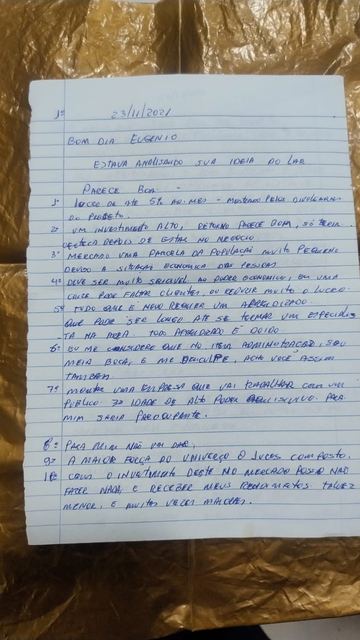 1º 23/11/2021
BOM DIA EUGENIO
ESTAVA ANALISANDO SUA IDEIA DO LAR
PARECE BOA -
1º LUCRO DE ATÉ 5% AO MES - MOSTRADO PELOS
DO PROJETO.
2º UM INVESTIMENTO ALTO, RETORNO PARECE BOM, SÓ TERIA
CERTEZA DEPOIS DE ESTAR NO NEGOCIO
3º MERCADO UMA PARCELA DA POPULAÇÃO MUITO PEQUENA
DEVIDO A SITUAÇÃO ECONOMICA DAS PESSOAS
4º DEVE SER MUITO AO PODER ECONOMICO, EM UMA
CRISE PODE FALTAR CLIENTES, OU REDUZIR MUITO O LUCRO.
5º TUDO QUE É NOVO REQUER UM APRENDIZADO
QUE PODE SER LONGO ATÉ SE TORNAR UM ESPECIALIS
TA NA AREA. TODO APRENDIZADO É DOIDO.
6º EU ME CONSIDERO QUE NO ITEM ADMINISTRAÇÃO, SOU
MEIA BOCA, E ME DESCULPE, ACHO VOCÊ ASSIM
TAMBEM.
7º MONTAR UMA EMPRESA QUE VAI TRABALHAR COM UM
PUBLICO 3º IDADE DE ALTO PODER AQUISITIVO. PARA
MIM SERIA PREOCUPANTE.
8º PARA MIM NÃO VAI DAR.
9º A MAIOR FORÇA DO UNIVERÇO O JUROS COMPOSTO.
10º COM O INVESTIMENTO DESTE NO MERCADO POSSO NÃO
FAZER NADA, E RECEBER MEUS RENDIMENTOS TALVEZ
MENOR, E MUITAS VEZES MAIORES.